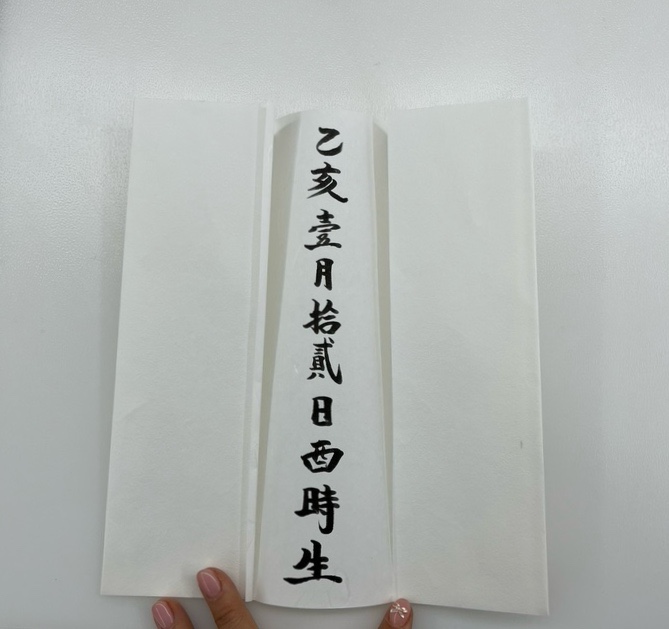 乙亥壹月拾貳日酉時生